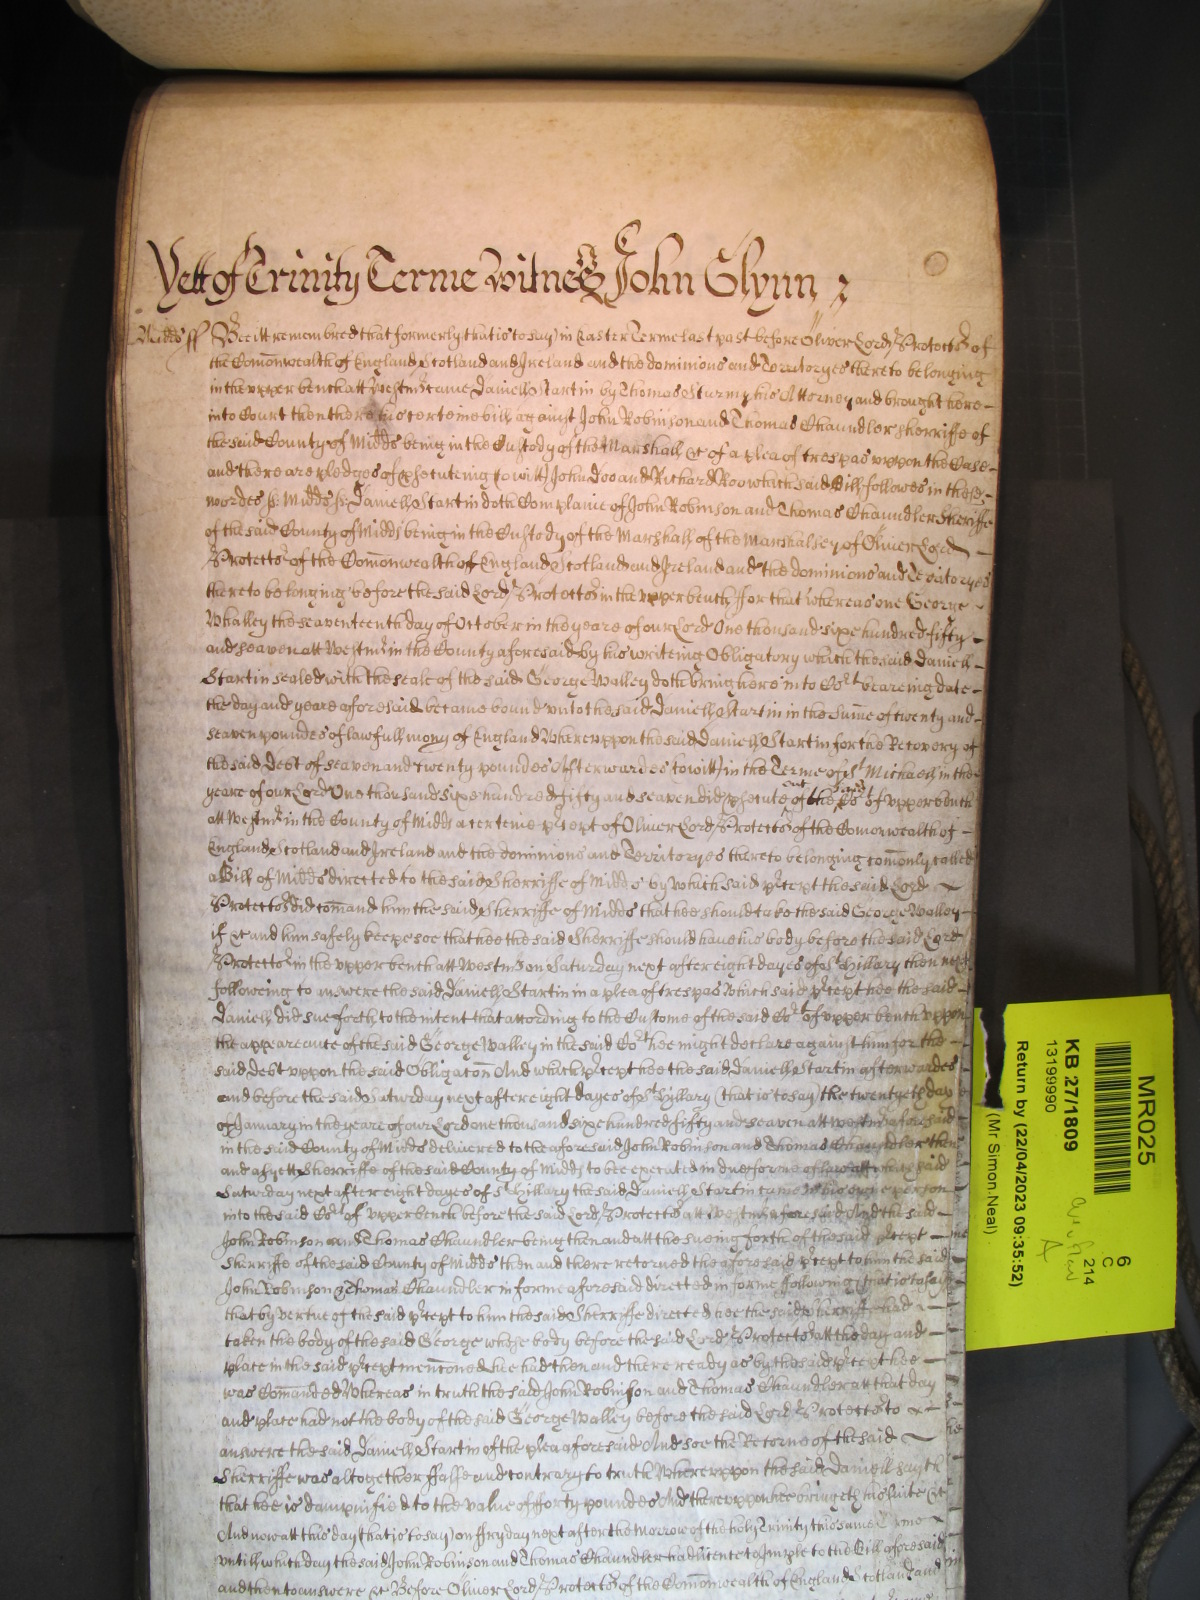 Yett of Trinity Terme Witnes John Glynn
Midds ss Bee itt remembred that formerly that is to say in Easter Terme last past before Oliver Lord Protector of
the Comonwealth of England Scotland and Ireland and the dominions and Territoryes thereto belonging
in the upper bench att Westmr came Daniell Startin by Thomas Sturmy his Attorney and brought here
into Court then there his certeine bill against John Robinson and Thomas Chaundler Sherriffe of
the said County of Midds being in the Custody of the Marshall &c of a plea of trespas uppon the Case
and there are pledges of prsecuteing to witt John Doo and Richard Roo which said Bill followes in these
wordes ss Midds ss Daniell Startin doth Complaine of John Robinson and Thomas Chaundler Sheriffe
of the said County of Midds being in the Custody of the Marshall of the Marshalsey of Oliver Lord
Protector of the Comonwealth of England Scotland and Ireland and the dominions and Territoryes
thereto belonging before the said Lord Protector in the upper bench ffor that whereas one George
Whalley the seaventeenth day of October in the yeare of our Lord One thousand sixe hundred fifty
and seaven att Westmr in the County aforesaid by his writeing Obligatory which the said Daniell
Startin sealed with the seale of the said George Walley doth bring here into Cort beareing date
the day and yeare aforesaid became bound unto the said Daniell Startin in the sume of twenty and
seaven poundes of lawfull mony of England Whereuppon the said Daniell Startin for the Recovery of
the said Debt of seaven and twenty poundes Afterwardes to witt in the Terme of St Michaell in the
yeare of our Lord One thousand sixe hundred fifty and seaven did prsecute out of the said Cort of upper bench
att Westmr in the County of Midds a certeine prcept of Oliver Lord Protector of the Comonwealth of
England Scotland and Ireland and the dominions and Territoryes thereto belonging comonly called
a Bill of Midds directed to the said Sherriffe of Midds by which said prcept the said Lord
Protector did comand him the said Sherriffe of Midds that hee should take the said George Walley
if &c and him safely keepe soe that hee the said Sherriffe should have his body before the said Lord
Protector in the upper bench att Westmr on Saturday next after eight dayes of St Hillary then next
followeing to answere the said Daniell Startin in a plea of trespas Which said prcept hee the said
Daniell did sue forth to the intent that according to the Custome of the said Cort of upper bench uppon
the appearance of the said George Walley in the said Cort hee might declare against him for the
said debt uppon the said Obligacon And which prcept hee the said Daniell Startin afterwardes
and before the said Saturday next after eight dayes of St Hillary (that is to say) the twentyeth day
of January in the yeare of our Lord one thousand sixe hundred fifty and seaven att Westmr aforesaid
in the said County of Midds delivered to the aforesaid John Robinson and Thomas Chaundler then
and as yett Sherriffe of the said County of Midds to bee executed in due forme of law att which said
Saturday next after eight dayes of St Hillary the said Daniell Startin came in his owne person
into the said Cort of upper bench before the said Lord Protector att Westmr aforesaid And the said
John Robinson and Thomas Chaundler being then and att the sueing forth of the said prcept
Sherriffe of the said County of Midds then and there retorned the aforesaid prcept to him the said
John Robinson & Thomas Chaundler in forme aforesaid directed in forme following (that is to say)
that by vertue of the said prcept to him the said Sherriffe directed hee the said Sherriffe had
taken the body of the said George whose body before the said Lord Protector att the day and
place in the said prcept menconed hee had then and there ready as by the said prcept hee
was Comanded Whereas in truth the said John Robinson and Thomas Chaundler att that day
and place had not the body of the said George Walley before the said Lord Protector to
answere the said Daniell Startin of the plea aforesaid And soe the Retorne of the said
Sherriffe was altogether ffalse and contrary to truth Whereuppon the said Daniell sayth
that hee is dampnified to the value of fforty poundes And thereuppon hee bringeth his suite &c
And now att this day that is to say on ffryday next after the Morrow of the holy Trinity this same Terme
untill which day the said John Robinson and Thomas Chaundler had licence to Imple to the Bill aforesaid
and then to answere &c Before Oliver Lord Protector of the Comonwealth of England Scotland and
MR025
KB 27/1809
13199990
Return by (22/04/2023 09:35:52)
(Mr Simon Neal)
6
C
214
A